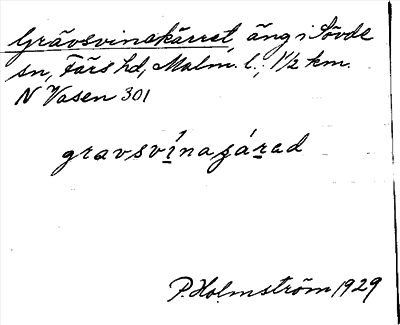 Grävsvinakärret, äng i Sövde
sn, Färs hd, Malm. l., 1 1/2 km.
N Vasen 301
gravsvínaʒárad
P. Holmström 1929